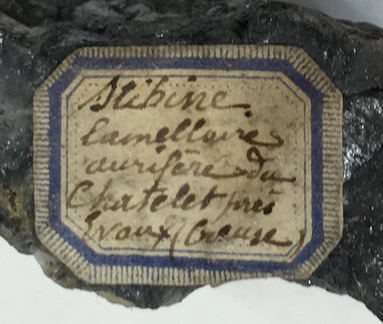 Stibine
lamellaire
aurifère du
Chatelet près
Evaux (Creuse)